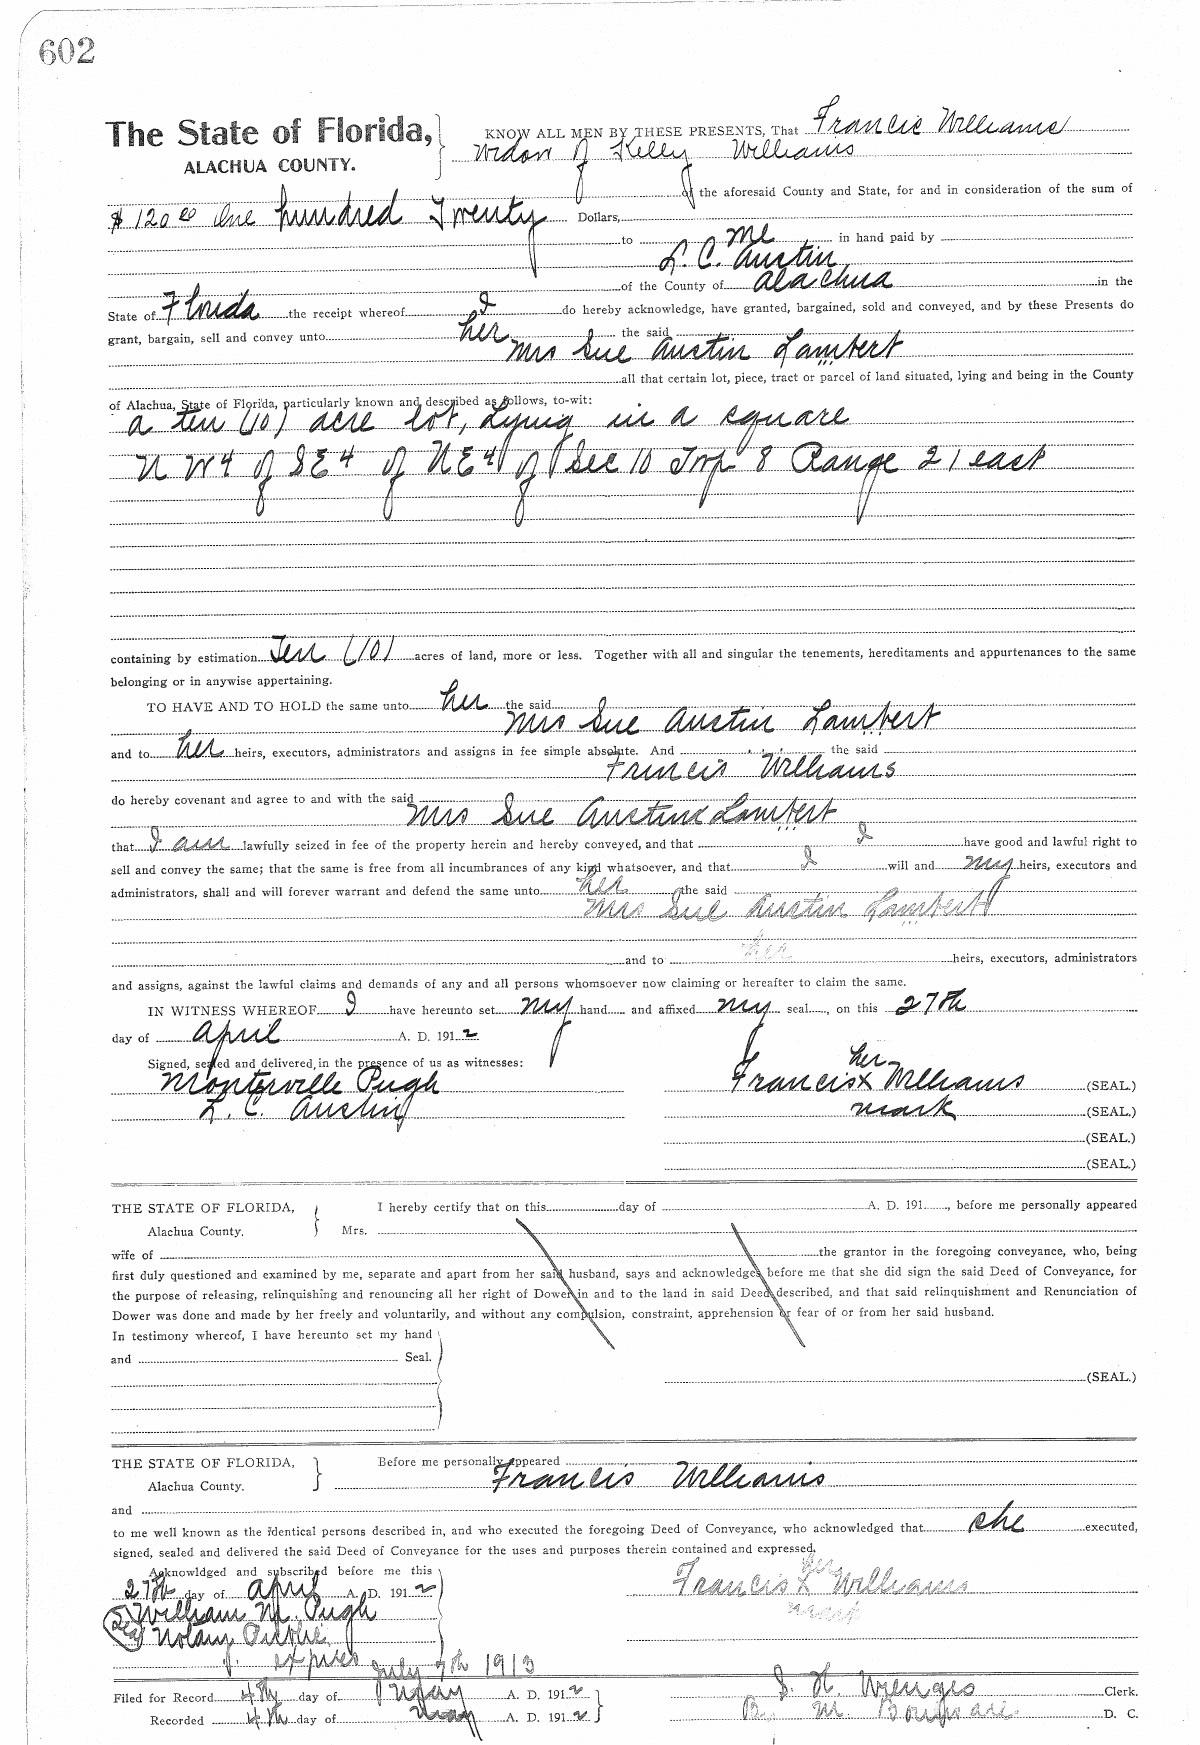 602
The State of Florida,
ALACHUA COUNTY.
KNOW ALL MEN BY THESE PRESENTS, That Francis Williams
Widow of Kelly Williams
of the aforesaid County and State, for and in consideration of the sum of
$120 00 One hundred Twenty Dollars,
to me in hand paid by
L. C. Austin
of the County of Alachua in the
State of Florida the receipt whereof I do hereby acknowledge, have granted, bargained, sold and conveyed, and by these Presents do
grant, bargain, sell and convey unto her the said
Mrs Sue Austin Lambert
all that certain lot, piece, tract or parcel of land situated, lying and being in the County
of Alachua, State of Florida, particularly known and described as follows, to-wit:
a ten (10) acre lot, Lying in a square
N W 4 of S E 4 of N E 4 of Sec 10 Tnp 8 Range 21 east
containing by estimation Ten (10) acres of land, more or less. Together with all and singular the tenements, hereditaments and appurtenances to the same
belonging or in anywise appertaining.
TO HAVE AND TO HOLD the same unto her the said
Mrs Sue Austin Lambert
and to her heirs, executors, administrators and assigns in fee simple absolute. And the said
Francis Williams
do hereby covenant and agree to and with the said
Mrs Sue Austin Lambert
that I am lawfully seized in fee of the property herein and hereby conveyed, and that I have good and lawful right to
sell and convey the same; that the same is free from all incumbrances of any kind whatsoever, and that I will and my heirs, executors and
administrators, shall and will forever warrant and defend the same unto her the said
Mrs Sue Austin Lambert
and to her heirs, executors, administrators
and assigns, against the lawful claims and demands of any and all persons whomsoever now claiming or hereafter to claim the same.
IN WITNESS WHEREOF I have hereunto set my hand and affixed my seal, on this 27th
day of April A. D. 1912
Signed, sealed and delivered, in the presence of us as witnesses:
Monterville Pugh
L. C. Austin
her
Francis x Williams (SEAL.)
mark (SEAL.)
(SEAL.)
(SEAL.)
THE STATE OF FLORIDA,
Alachua County.
I hereby certify that on this day of A. D. 191 , before me personally appeared
Mrs.
wife of the grantor in the foregoing conveyance, who, being
first duly questioned and examined by me, separate and apart from her said husband, says and acknowledges before me that she did sign the said Deed of Conveyance, for
the purpose of releasing, relinquishing and renouncing all her right of Dower in and to the land in said Deed described, and that said relinquishment and Renunciation of
Dower was done and made by her freely and voluntarily, and without any compulsion, constraint, apprehension or fear of or from her said husband.
In testimony whereof, I have hereunto set my hand
and Seal.
(SEAL.)
THE STATE OF FLORIDA,
Alachua County.
Before me personally appeared
Francis Williams
and
to me well known as the identical persons described in, and who executed the foregoing Deed of Conveyance, who acknowledged that she executed,
signed, sealed and delivered the said Deed of Conveyance for the uses and purposes therein contained and expressed.
Acknowldged and subscribed before me this
27th day of April A. D. 1912
William M. Pugh
Notary Public
expires July 7th 1913
her
Francis x Williams
mark
Filed for Record 4th day of May A. D. 1912
Recorded 4th day of May A. D. 1912
S. H. Wienges Clerk.
D. C.